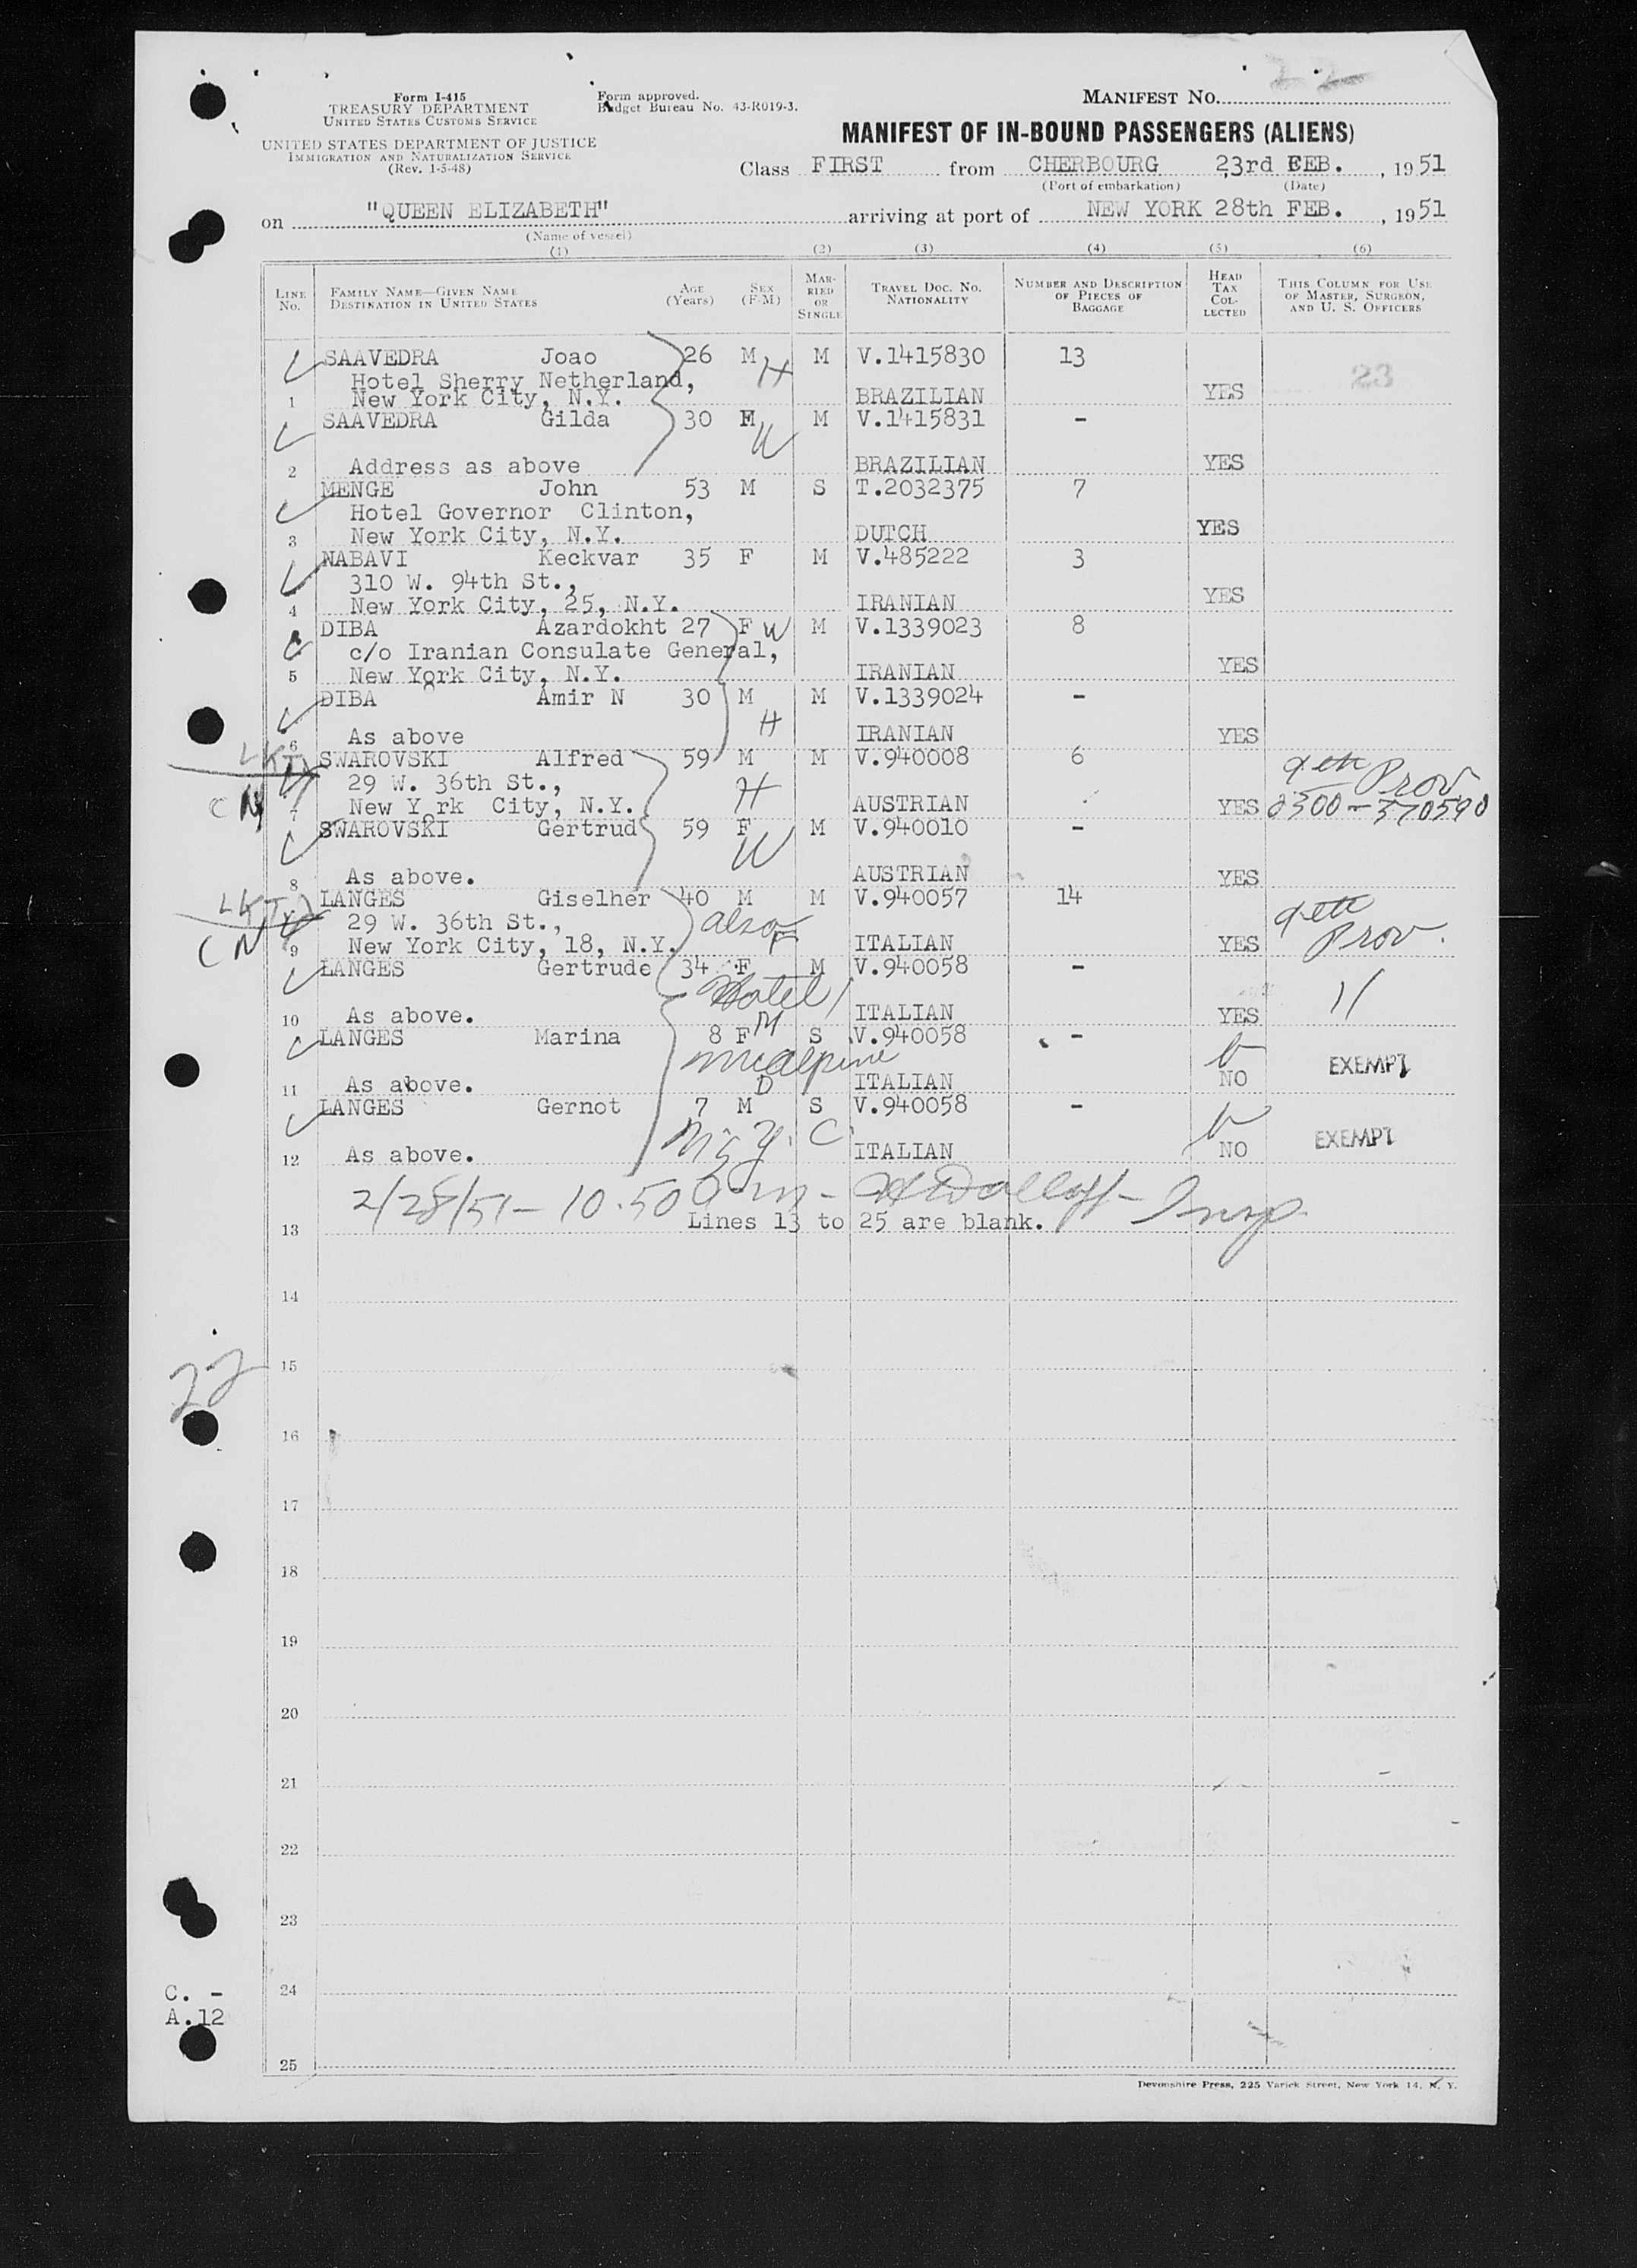 22
Form I-415
TREASURY DEPARTMENT
UNITED STATES CUSTOMS SERVICE
UNITED STATES DEPARTMENT OF JUSTICE
IMMIGRATION AND NATURALIZATION SERVICE
(Rev. 1-5-48)
Form approved.
Budget Bureau No. 43-R019-3.
MANIFEST NO.
MANIFEST OF IN-BOUND PASSENGERS (ALIENS)
Class FIRST from CHERBOURG 23rd FEB. , 1951
(Port of embarkation) (Date)
on "QUEEN ELIZABETH" arriving at port of NEW YORK 28th FEB. , 1951
(Name of vessel)
(1) (2) (3) (4) (5) (6)
LINE No. FAMILY NAME—GIVEN NAME DESTINATION IN UNITED STATES AGE (Years) SEX (F-M) MARRIED OR SINGLE TRAVEL DOC. NO. NATIONALITY NUMBER AND DESCRIPTION OF PIECES OF BAGGAGE HEAD TAX COLLECTED THIS COLUMN FOR USE OF MASTER, SURGEON, AND U. S. OFFICERS
SAAVEDRA Joao 26 M H M V.1415830 13
Hotel Sherry Netherland, 23
1 New York City, N.Y. BRAZILIAN YES
SAAVEDRA Gilda 30 F W M V.1415831 -
2 Address as above BRAZILIAN YES
MENGE John 53 M S T.2032375 7
Hotel Governor Clinton,
3 New York City, N.Y. DUTCH YES
NABAVI Keckvar 35 F M V.485222 3
310 W. 94th St.,
4 New York City, 25, N.Y. IRANIAN YES
DIBA Azardokht 27 F W M V.1339023 8
c/o Iranian Consulate General,
5 New York City, N.Y. IRANIAN YES
DIBA Amir N 30 M H M V.1339024 -
6 As above IRANIAN YES
SWAROVSKI Alfred 59 M H M V.940008 6
29 W. 36th St., Prov
7 New York City, N.Y. AUSTRIAN YES 0300-370590
SWAROVSKI Gertrud 59 F W M V.940010 -
8 As above. AUSTRIAN YES
LANGES Giselher 40 M M V.940057 14
29 W. 36th St., also
C N 9 New York City, 18, N.Y. F ITALIAN YES Prov.
LANGES Gertrude 34 F M V.940058 -
Hotel
10 As above. M ITALIAN YES 11
LANGES Marina 8 F S V.940058 -
mcalpine EXEMPT
11 As above. D ITALIAN NO
LANGES Gernot 7 M S V.940058 -
N. Y. C. EXEMPT
12 As above. ITALIAN NO
2/28/51 - 10.50 a.m - Insp.
13 Lines 13 to 25 are blank.
14
15
22
16
17
18
19
20
21
22
23
24
C. -
A.12
25
Devonshire Press, 225 Varick Street, New York 14, N. Y.